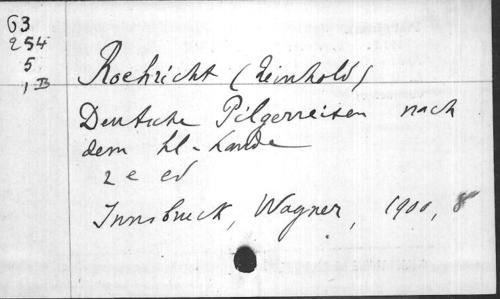 63
254
5
1 B
Roehricht (Reinhold)
Deutsche Pilgerreisen nach
dem hl-Lande
2 e ed
Innsbruck, Wagner, 1900, 8°